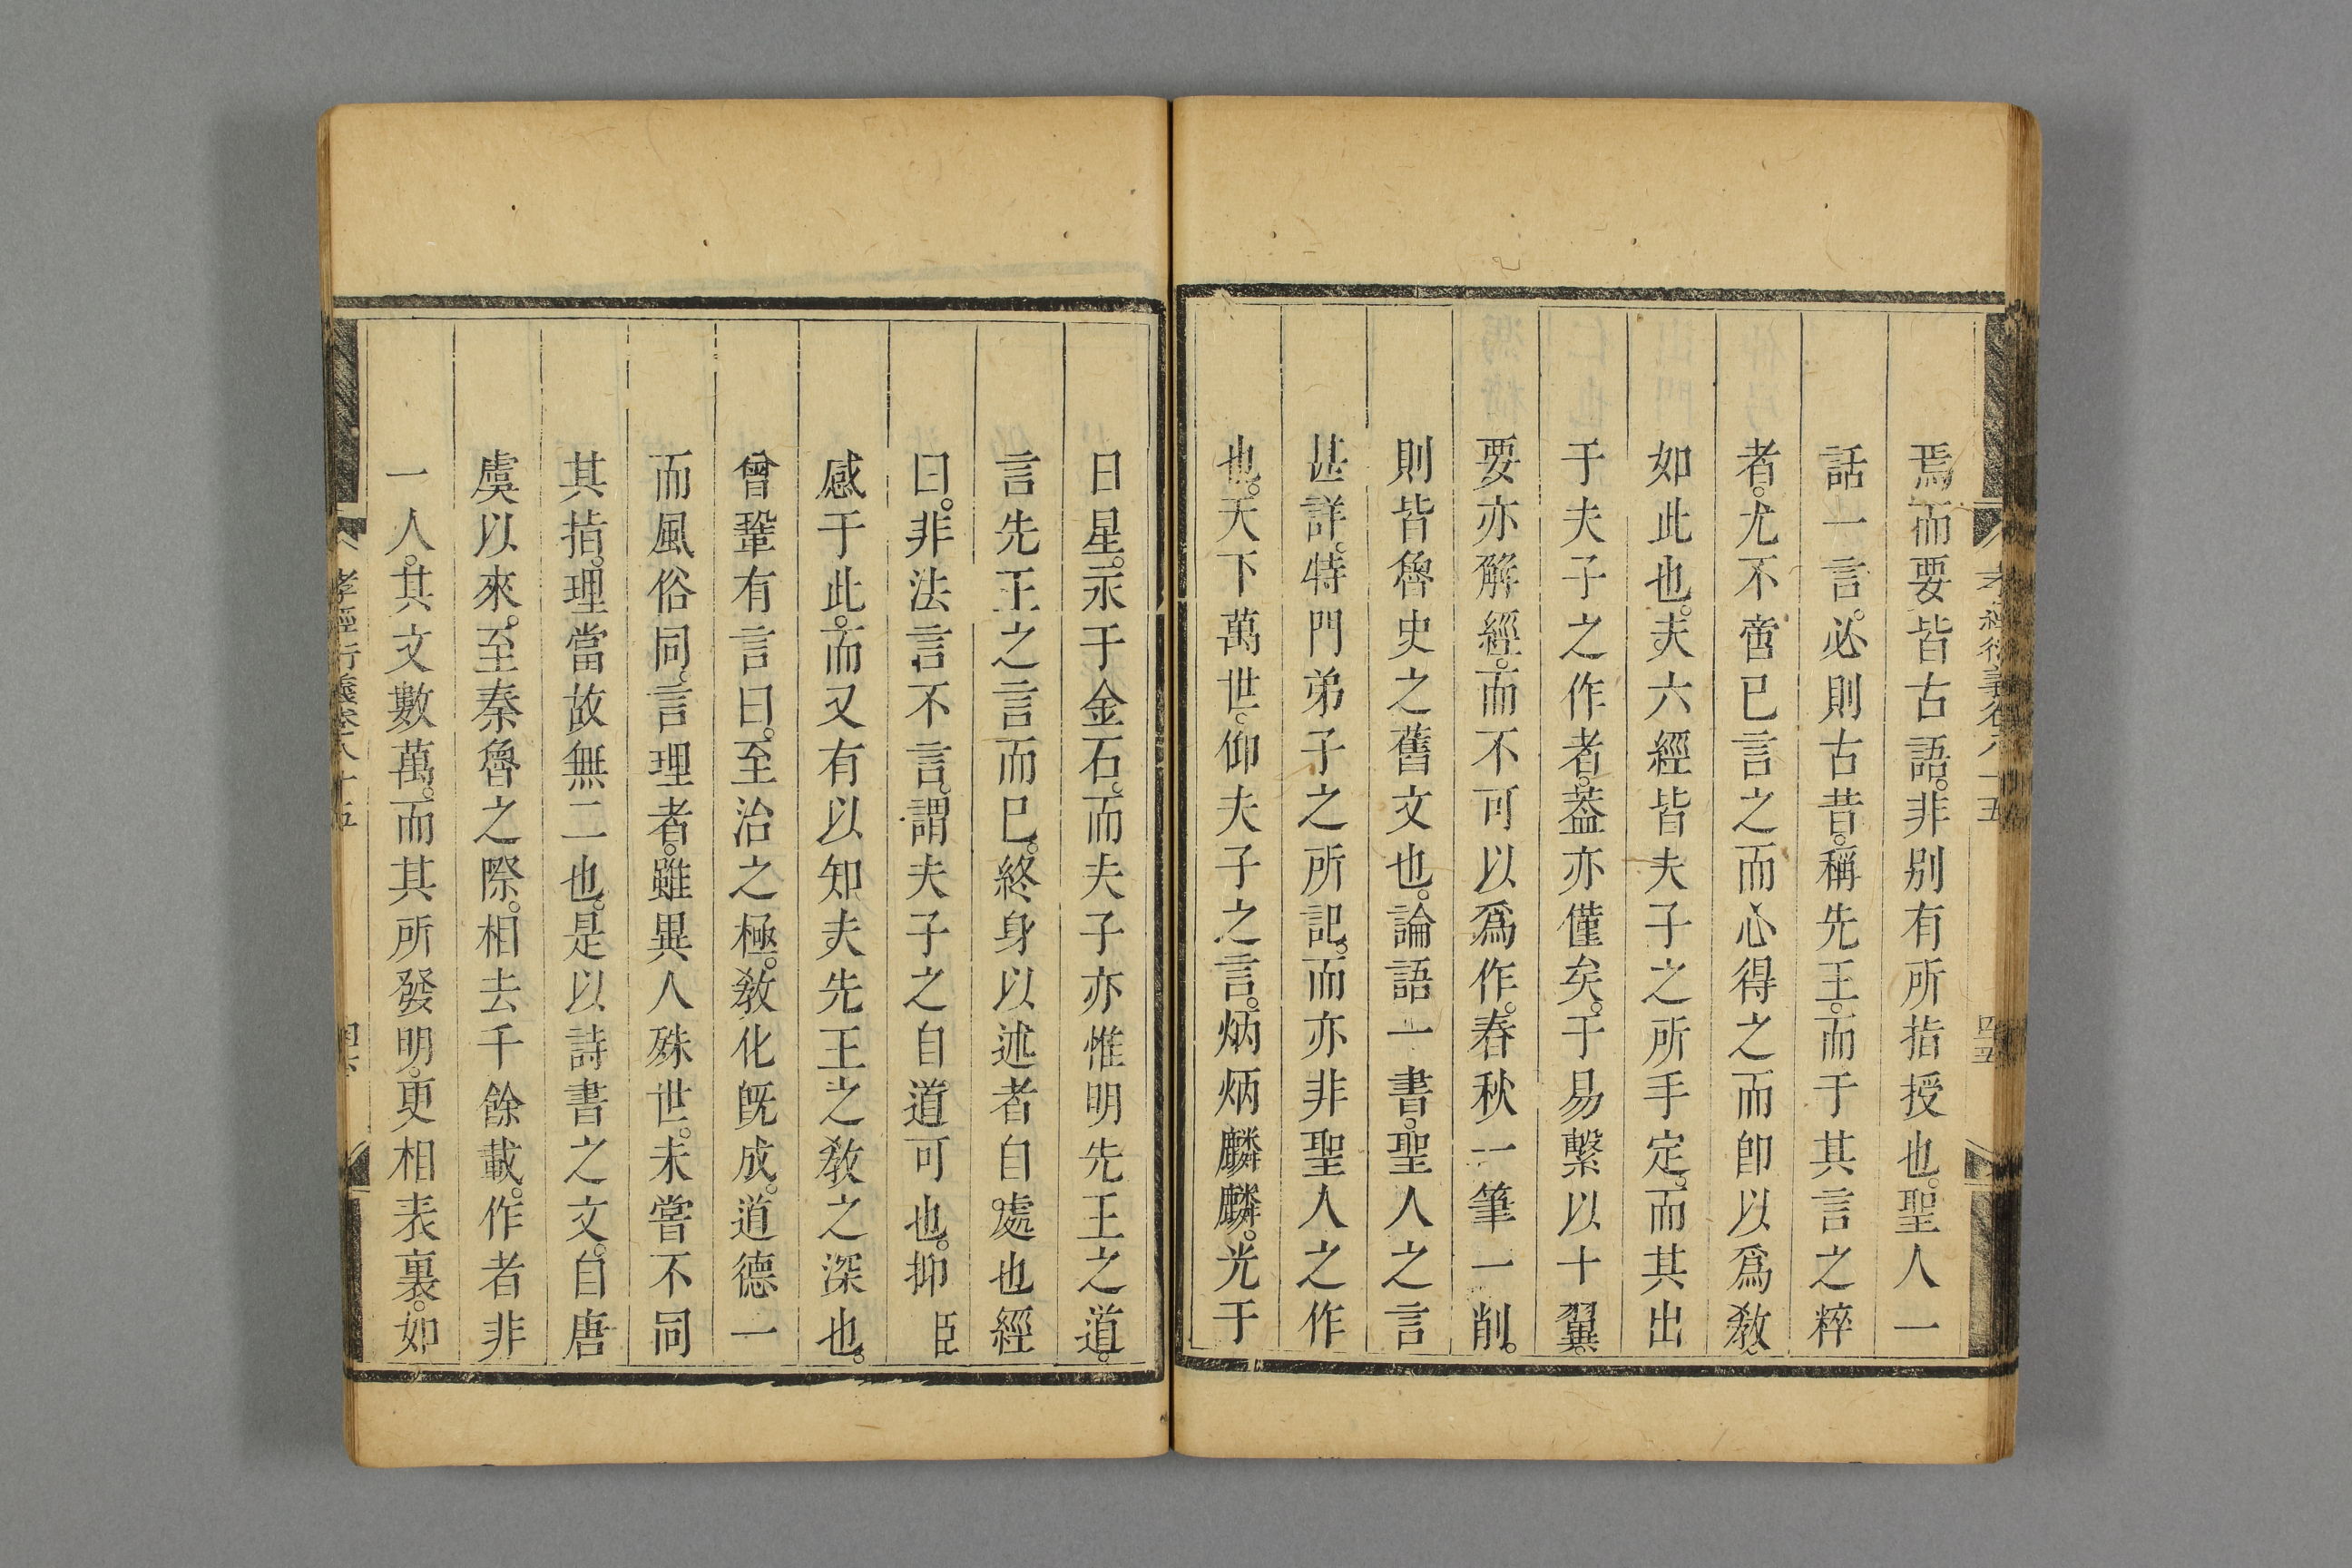 焉而要皆古語。非别有所指授也。聖人一
話一言。必則古昔。稱先王。而于其言之粹
者。尤不啻已言之而心得之而卽以爲敎。
如此也。夫六經皆夫子之所手定。而其出
于夫子之作者。葢亦僅矣。于易繫以十翼。
要亦解經。而不可以爲作。春秋一筆一削。
則皆魯史之舊文也。論語一書。聖人之言
甚詳。特門弟子之所記。而亦非聖人之作
也。天下萬世。仰夫子之言。炳炳麟麟。光于
日星。永于金石。而夫子亦惟明先王之道。
言先王之言而已。終身以述者自處也。經
曰。非法言不言。謂夫子之自道可也。抑臣
感于此。而又有以知夫先王之敎之深也。
曾鞏有言曰。至治之極。敎化旣成。道德一
而風俗同。言理者。雖異人殊世。未嘗不同
其指。理當故無二也。是以詩書之文。自唐
虞以來。至秦魯之際。相去千餘載。作者非
一人。其文數萬。而其所發明。更相表裏。如
孝經衍義卷八十五